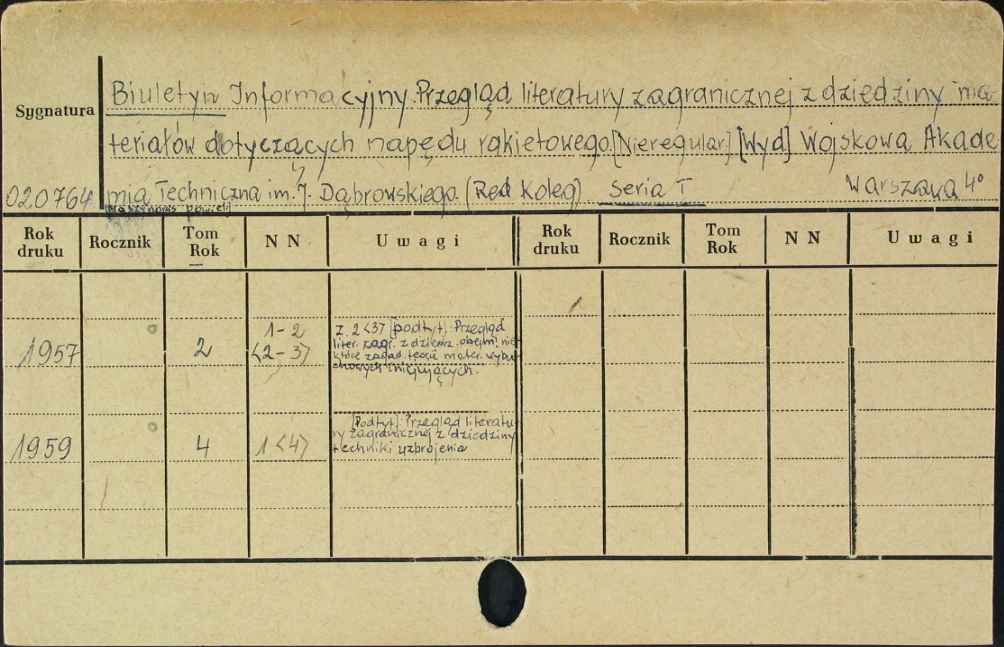 Sygnatura
Biuletyn Informacyjny. Przegląd literatury zagranicznej z dziedziny ma-
teriałów dotyczących napędu rakietowego. [Nieregular.] [Wyd.] Wojskowa Akade
020764 mia Techniczna im. J. Dąbrowskiego. (Red Koleg) Seria T Warszawa 4°
[Maszynopis powiel.]
Rok druku Rocznik Tom Rok N N Uwagi Rok druku Rocznik Tom Rok N N Uwagi
1957 2 1-2 <2-3>
z. 2<3> [podtyt]. Przegląd
liter. zagr. z dziedz. obejm. nie-
które zagad. teorii mater. wybu-
chowych inicjujących.
1959 4 1<4>
[Podtyt]. Przegląd literatu-
ry zagranicznej z dziedziny
techniki uzbrojenia